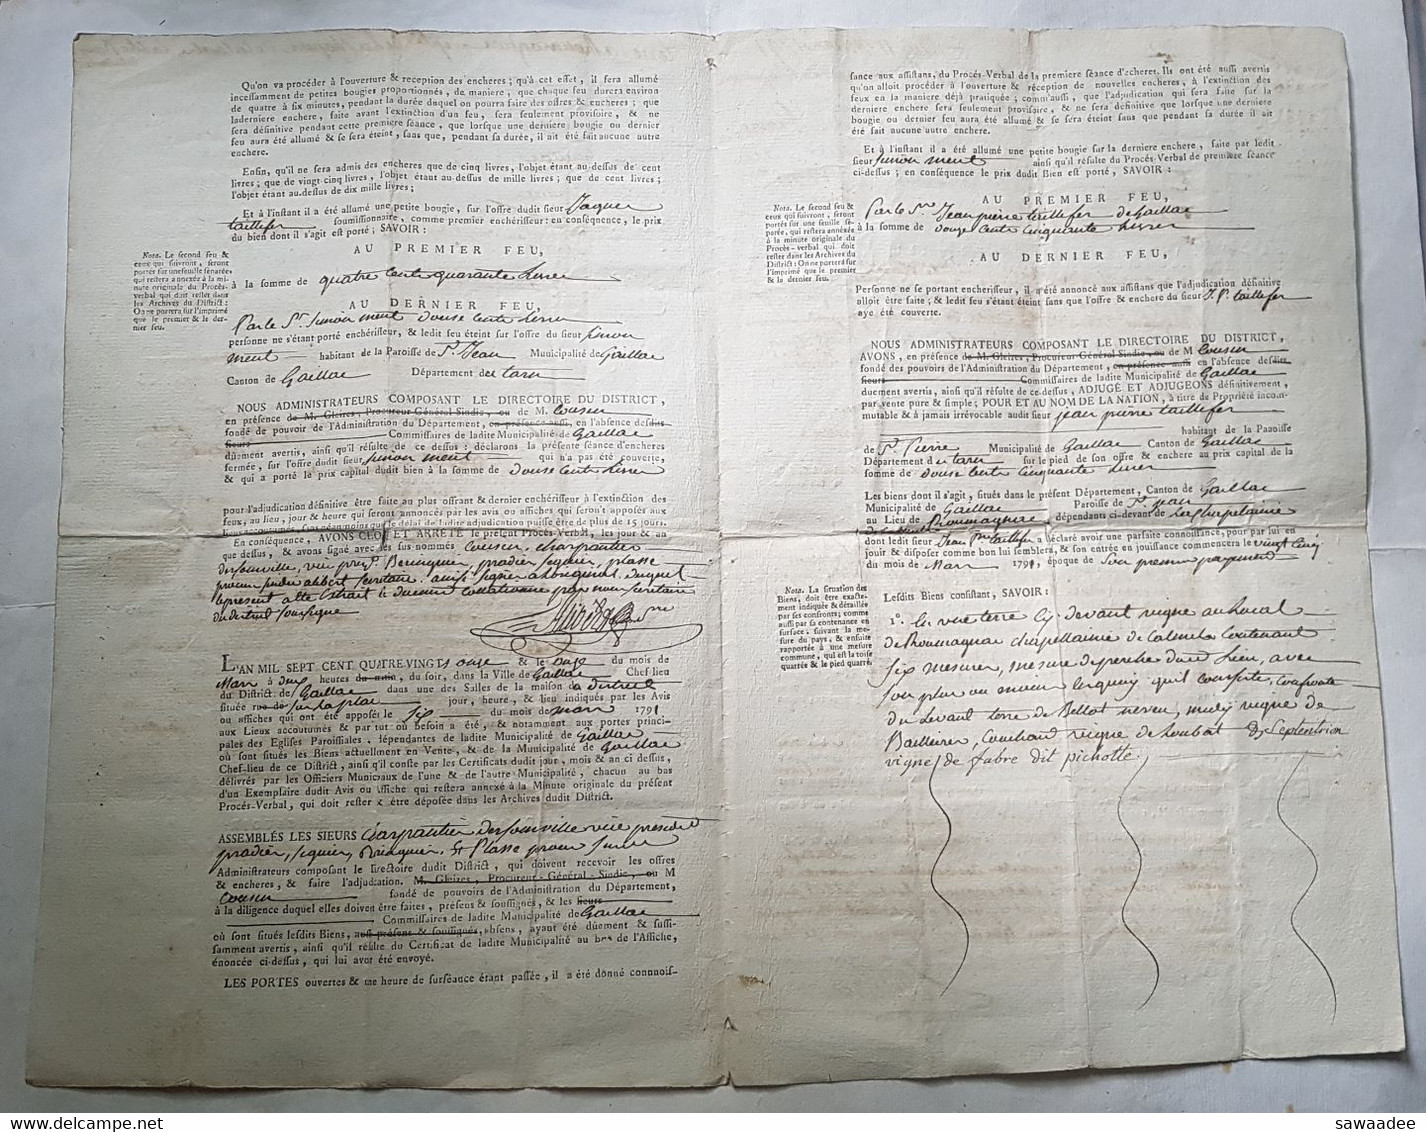 Qu'on va procéder à l'ouverture & reception des encheres; qu'à cet effet, il sera allumé
incessamment de petites bougies proportionnés, de maniere, que chaque feu durera environ
de quatre à six minutes, pendant la durée duquel on pourra faire des offres & encheres; que
laderniere enchere, faite avant l'extinction d'un feu, sera seulement provisoire, & ne
sera définitive pendant cette premiere séance, que lorsque une derniere bougie ou dernier
feu aura été allumé & se sera éteint, sans que, pendant sa durée, il ait été fait aucune autre
enchere.
Enfin, qu'il ne sera admis des encheres que de cinq livres, l'objet étant au-dessus de cent
livres; que de vingt-cinq livres, l'objet étant au-dessus de mille livres; que de cent livres,
l'objet étant au-dessus de dix mille livres;
Et à l'instant il a été allumé une petite bougie, sur l'offre dudit sieur Jaques
taillefer soumissionaire, comme premier enchérisseur: en conséquence, le prix
du bien dont il s'agit est porté; SAVOIR:
AU PREMIER FEU,
à la somme de quatre cents quarante livres
AU DERNIER FEU,
Par le Sr. Simon ment douse cents livres
personne ne s'étant porté enchérisseur, & ledit feu éteint sur l'offre du sieur simon
ment habitant de la Paroisse de St. Jean Municipalité de Gaillac
Canton de Gaillac Département du tarn
Nota. Le second feu &
ceux qui suivront, seront
portés sur une feuille séparée,
qui restera annexée à la mi-
nute originale du Procès-
verbal qui doit rester dans
les Archives du District:
On ne portera sur l'imprimé
que le premier & le der-
nier feu.
NOUS ADMINISTRATEURS COMPOSANT LE DIRECTOIRE DU DISTRICT,
en présence de M. Gleizes, Procureur-Général Sindic, ou de M. Cousin
fondé de pouvoir de l'Administration du Département, en présence aussi, en l'absence desdits
sieurs Commissaires de ladite Municipalité de Gaillac
dûement avertis, ainsi qu'il résulte de ce dessus: déclarons la présente séance d'encheres
fermée, sur l'offre dudit sieur simon ment qui n'a pas été couverte,
& qui a porté le prix capital dudit bien à la somme de douse cents livres
pour l'adjudication définitive être faite au plus offrant & dernier enchérisseur à l'extinction des
feux, au lieu, jour & heure qui seront annoncés par les avis ou affiches qui seront apposés aux
lieux accoutumés, sans néanmoins que le délai de ladite adjudication puisse être de plus de 15 jours.
En conséquence, AVONS CLOS ET ARRÊTÉ le présent Procès-Verbal, les jour & an
que dessus, & avons signé avec les sus-nommés
L'AN MIL SEPT CENT QUATRE-VINGTS onze & le onze du mois de
Mars à deux heures du matin, du soir, dans la Ville de Gaillac Chef-lieu
du District de Gaillac dans une des Salles de la maison du district
située rue de sur la place jour, heure, & lieu indiqués par les Avis
ou affiches qui ont été apposés le six du mois de mars 1791
aux Lieux accoutumés & par tut où besoin a été, & notamment aux portes princi-
pales des Eglises Paroissiales, dépendantes de ladite Municipalité de Gaillac
où sont situés les Biens actuellement en Vente, & de la Municipalité de Gaillac
Chef-lieu de ce District, ainsi qu'il conste par les Certificats dudit jour, mois & an ci dessus,
délivrés par les Officiers Municaux de l'une & de l'autre Municipalité, chacun au bas
d'un Exemplaire dudit Avis ou Affiche qui restera annexé à la Minute originale du présent
Procès-Verbal, qui doit rester & être déposée dans les Archives dudit District.
ASSEMBLÉS LES SIEURS
Administrateurs composant le directoire dudit District, qui doivent recevoir les offres
& encheres, & faire l'adjudication. M. Gleizes, Procureur-Général-Sindic, ou M
Cousin fondé de pouvoirs de l'Administration du Département,
à la diligence duquel elles doivent être faites, présens & soussignés, & les sieurs
Commissaires de ladite Municipalité de Gaillac
où sont situés lesdits Biens, aussi présens & soussignés, absens, ayant été dûement & suffi-
samment avertis, ainsi qu'il résulte du Certificat de ladite Municipalité au bas de l'Affiche,
énoncée ci-dessus, qui lui avor été envoyé.
LES PORTES ouvertes & une heure de surséance étant passée, il a été donné connnois-
sance aux assistans, du Procès-Verbal de la premiere séance d'echeret. Ils ont été aussi avertis
qu'on alloit procéder à l'ouverture & réception de nouvelles encheres, à l'extinction des
feux en la maniere déjà pratiquée; comm'aussi, que l'adjudication qui sera faite sur la
derniere enchere sera seulement provisoire, & ne sera définitive que lorsque une derniere
bougie ou dernier feu aura été allumé & se sera éteint sans que pendant sa durée il ait
été fait aucune autre enchere.
Et à l'instant il a été allumé une petite bougie sur la derniere enchere, faite par ledit
sieur simon ment ainsi qu'il résulte du Procès-Verbal de premiere séance
ci-dessus; en conséquence le prix dudit Bien est porté, SAVOIR:
AU PREMIER FEU,
Par le Sr. Jean pierre taillefer de Gaillac
à la somme de douze cents cinquante livres
AU DERNIER FEU,
Nota. Le second feu &
ceux qui suivront, seront
portés sur une feuille sé-
parée, qui restera annexée
à la minute originale du
Procès-verbal qui doit
rester dans les Archives du
District: On ne portera sur
l'imprimé que le premier
& le dernier feu.
Personne ne se portant enchérisseur, il a été annoncé aux assistans que l'adjudication définitive
alloit être faite; & ledit feu s'étant éteint sans que l'offre & enchere du sieur J. P. taillefer
aye été couverte.
NOUS ADMINISTRATEURS COMPOSANT LE DIRECTOIRE DU DISTRICT,
AVONS, en présence de M. Gleizes, Procureur Général Sindic, ou de M Cousin
fondé des pouvoirs de l'Administration du Département, en présence aussi en l'absence desdits
sieurs Commissaires de ladite Municipalité de Gaillac
duement avertis, ainsi qu'il résulte de ce-dessus, ADJUGÉ ET ADJUGEONS définitivement,
par vente pure & simple; POUR ET AU NOM DE LA NATION, à titre de Propriété incom-
mutable & à jamais irrévocable audit sieur jean pierre taillefer
habitant de la Paroisse
de St. Pierre Municipalité de Gaillac Canton de Gaillac
Département du tarn sur le pied de son offre & enchere au prix capital de la
somme de douse cents cinquante livres
Les biens dont il s'agit, situés dans le présent Département, Canton de Gaillac
Municipalité de Gaillac Paroisse de St. jean
au Lieu de Roumagnac dépendants ci-devant de la chapelainie
dont ledit sieur Jean Pre taillefer a déclaré avoir une parfaite connoissance, pour par lui en
jouir & disposer comme bon lui semblera, & son entrée en jouissance commencera le vingt cinq
du mois de Mars 1791, époque de son premier payement
Lesdits Biens consistant, SAVOIR:
Nota. La situation des
Biens, doit être exacte-
ment indiquée & détaillée
par ses confronts; comme
aussi par sa contenance en
surface, suivant la me-
sure du pays, & ensuite
rapportés à une mesure
commune, qui est la toise
quarrée & le pied quarré.
1°. en une terre cy devant vigne au local
de Roumagnac chapellainie de Contenant
six mesures, mesure de perche dud. lieu, avec
son plus ou moins lesquels qu'il consiste, confronte
du Levant terre de Bellot neveu, midy vigne de
Bailliver, couchant vigne de & Septentrion
vigne de fabre dit pichotte
sawaadee